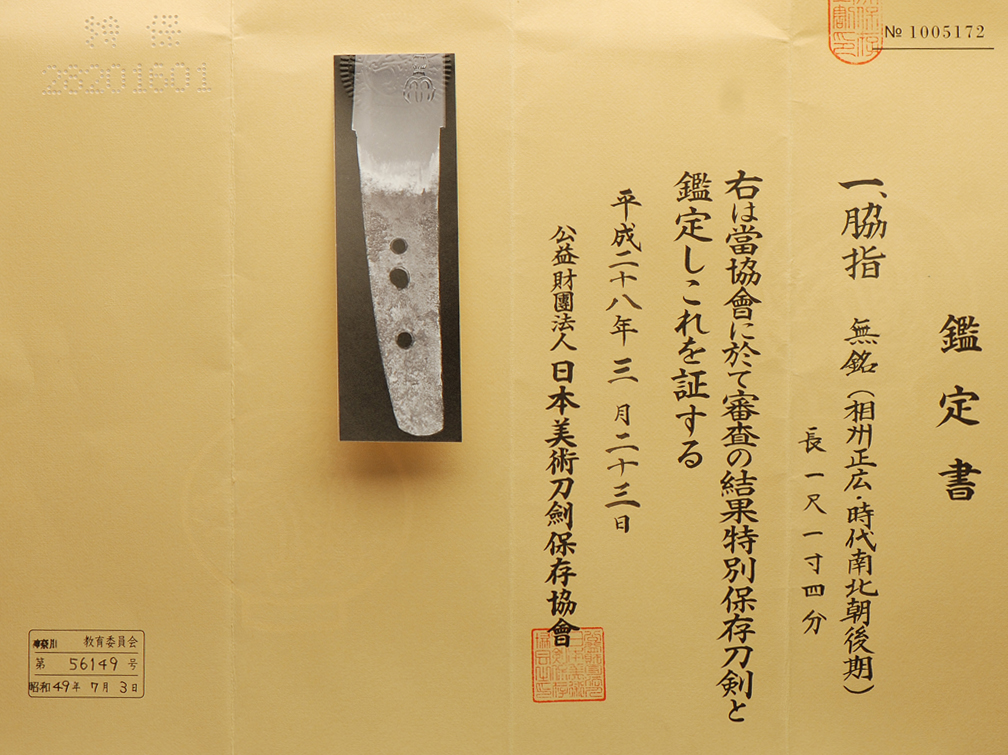 № 1005172
鑑定書
一、脇指 無銘(相州正広・時代南北朝後期)
長一尺一寸四分
右は當協會に於て審査の結果特別保存刀剣と
鑑定しこれを証する
平成二十八年三月二十三日
公益財團法人 日本美術刀劍保存協會
特保
28201601
神奈川 教育委員会
第 56149 号
昭和49年 7月 3日